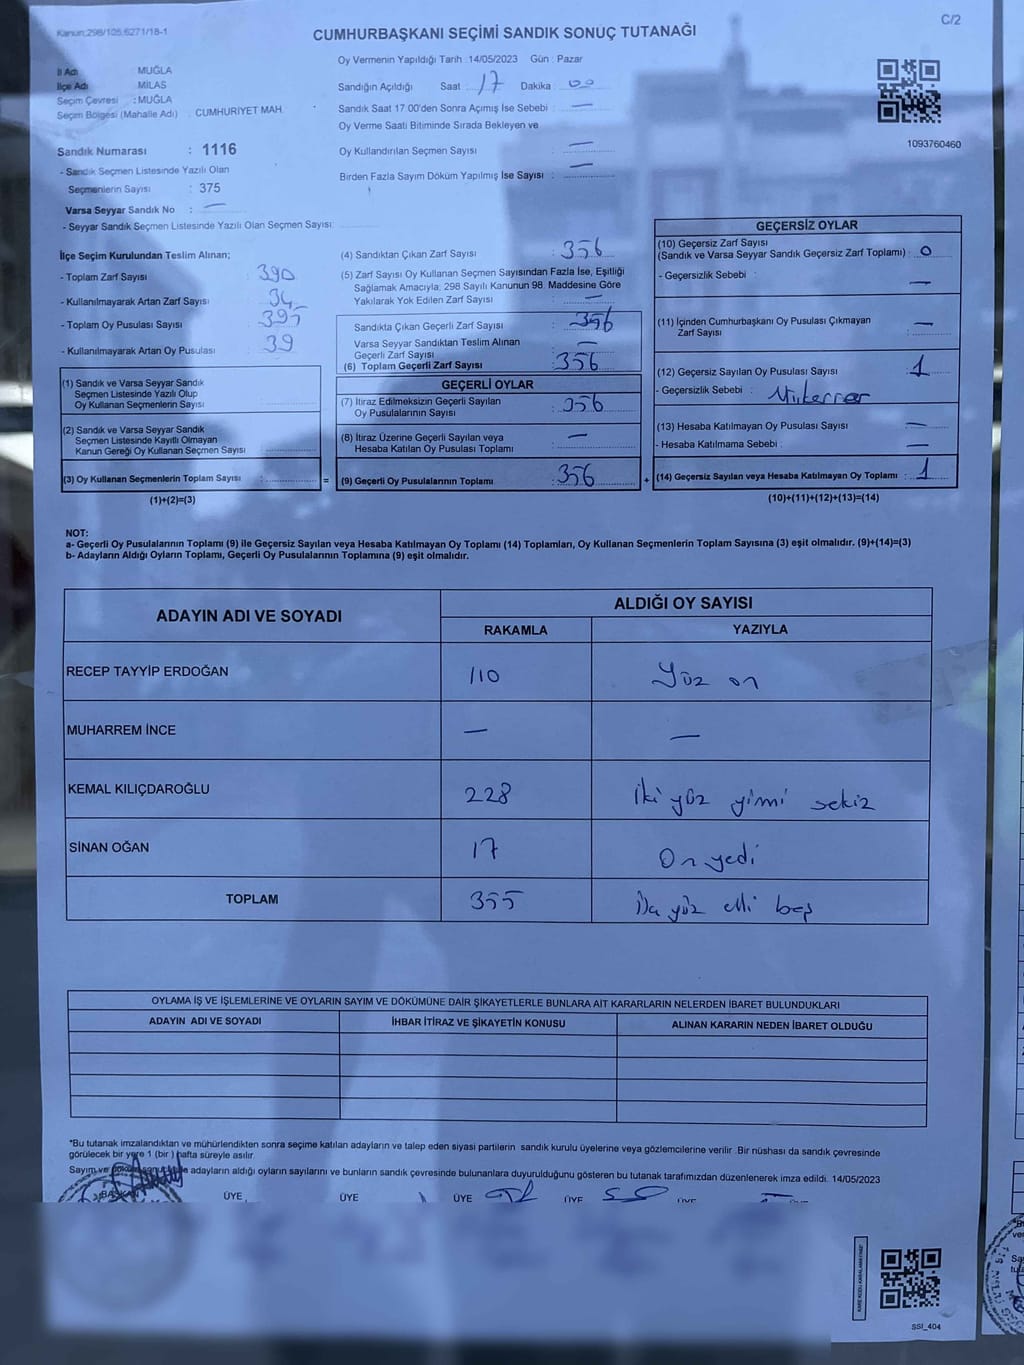 Kanun:298/105,6271/18-1
C/2
CUMHURBAŞKANI SEÇİMİ SANDIK SONUÇ TUTANAĞI
Oy Vermenin Yapıldığı Tarih :14/05/2023 Gün : Pazar
İl Adı MUĞLA
İlçe Adı MİLAS
Seçim Çevresi : MUĞLA
Seçim Bölgesi (Mahalle Adı) : CUMHURİYET MAH.
Sandığın Açıldığı Saat : 17 Dakika : 00
Sandık Saat 17:00'den Sonra Açımış İse Sebebi : —
Oy Verme Saati Bitiminde Sırada Bekleyen ve
Oy Kullandırılan Seçmen Sayısı : —
Birden Fazla Sayım Döküm Yapılmış İse Sayısı : —
1093760460
Sandık Numarası : 1116
- Sandık Seçmen Listesinde Yazılı Olan
Seçmenlerin Sayısı : 375
Varsa Seyyar Sandık No : —
- Seyyar Sandık Seçmen Listesinde Yazılı Olan Seçmen Sayısı:
İlçe Seçim Kurulundan Teslim Alınan;
- Toplam Zarf Sayısı : 390
- Kullanılmayarak Artan Zarf Sayısı : 34
- Toplam Oy Pusulası Sayısı : 395
- Kullanılmayarak Artan Oy Pusulası : 39
(1) Sandık ve Varsa Seyyar Sandık
Seçmen Listesinde Yazılı Olup
Oy Kullanan Seçmenlerin Sayısı
(2) Sandık ve Varsa Seyyar Sandık
Seçmen Listesinde Kayıtlı Olmayan
Kanun Gereği Oy Kullanan Seçmen Sayısı
(3) Oy Kullanan Seçmenlerin Toplam Sayısı : =
(1)+(2)=(3)
(4) Sandıktan Çıkan Zarf Sayısı : 356
(5) Zarf Sayısı Oy Kullanan Seçmen Sayısından Fazla İse, Eşitliği
Sağlamak Amacıyla, 298 Sayılı Kanunun 98. Maddesine Göre
Yakılarak Yok Edilen Zarf Sayısı : —
Sandıkta Çıkan Geçerli Zarf Sayısı : 356
Varsa Seyyar Sandıktan Teslim Alınan
Geçerli Zarf Sayısı : —
(6) Toplam Geçerli Zarf Sayısı : 356
GEÇERLİ OYLAR
(7) İtiraz Edilmeksizin Geçerli Sayılan
Oy Pusulalarının Sayısı : 356
(8) İtiraz Üzerine Geçerli Sayılan veya
Hesaba Katılan Oy Pusulası Toplamı : —
(9) Geçerli Oy Pusulalarının Toplamı : 356 +
GEÇERSİZ OYLAR
(10) Geçersiz Zarf Sayısı
(Sandık ve Varsa Seyyar Sandık Geçersiz Zarf Toplamı) : 0
- Geçersizlik Sebebi : —
(11) İçinden Cumhurbaşkanı Oy Pusulası Çıkmayan
Zarf Sayısı : —
(12) Geçersiz Sayılan Oy Pusulası Sayısı : 1
- Geçersizlik Sebebi : Mükerrer
(13) Hesaba Katılmayan Oy Pusulası Sayısı : —
- Hesaba Katılmama Sebebi : —
(14) Geçersiz Sayılan veya Hesaba Katılmayan Oy Toplamı : 1
(10)+(11)+(12)+(13)=(14)
NOT:
a- Geçerli Oy Pusulalarının Toplamı (9) ile Geçersiz Sayılan veya Hesaba Katılmayan Oy Toplamı (14) Toplamları, Oy Kullanan Seçmenlerin Toplam Sayısına (3) eşit olmalıdır. (9)+(14)=(3)
b- Adayların Aldığı Oyların Toplamı, Geçerli Oy Pusulalarının Toplamına (9) eşit olmalıdır.
ADAYIN ADI VE SOYADI
ALDIĞI OY SAYISI
RAKAMLA YAZIYLA
RECEP TAYYİP ERDOĞAN 110 Yüz on
MUHARREM İNCE — —
KEMAL KILIÇDAROĞLU 228 İki yüz yirmi sekiz
SİNAN OĞAN 17 On yedi
TOPLAM 355 yüz elli beş
OYLAMA İŞ VE İŞLEMLERİNE VE OYLARIN SAYIM VE DÖKÜMÜNE DAİR ŞİKAYETLERLE BUNLARA AİT KARARLARIN NELERDEN İBARET BULUNDUKLARI
ADAYIN ADI VE SOYADI İHBAR İTİRAZ VE ŞİKAYETİN KONUSU ALINAN KARARIN NEDEN İBARET OLDUĞU
"Bu tutanak imzalandıktan ve mühürlendikten sonra seçime katılan adayların ve talep eden siyasi partilerin sandık kurulu üyelerine veya gözlemcilerine verilir. Bir nüshası da sandık çevresinde
görülecek bir yere 1 (bir) hafta süreyle asılır.
Sayım ve adayların aldığı oyların sayılarını ve bunların sandık çevresinde bulunanlara duyurulduğunu gösteren bu tutanak tarafımızdan düzenlenerek imza edildi. 14/05/2023
BAŞKAN ÜYE ÜYE ÜYE ÜYE ÜYE
SSI_404